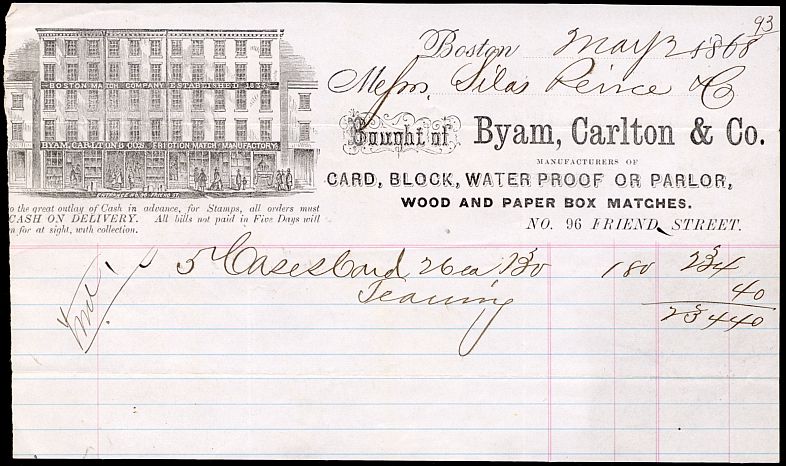 93
Boston May 2 1868
Messrs. Silas Peirce & Co
Bought of Byam, Carlton & Co.
MANUFACTURERS OF
CARD, BLOCK, WATER PROOF OR PARLOR,
WOOD AND PAPER BOX MATCHES.
NO. 96 FRIEND STREET.
BOSTON MATCH COMPANY ESTABLISHED
BYAM, CARLTON & CO'S. FRICTION MATCH MANUFACTORY
to the great outlay of Cash in advance, for Stamps, all orders must
CASH ON DELIVERY. All bills not paid in Five Days will
n for at sight, with collection.
5 Cases Card 26 ea 130 180 234
Teaming 40
234 40